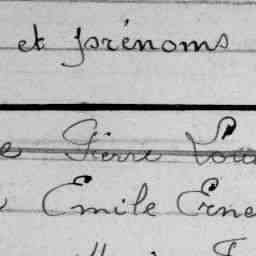 et prénoms
Pierre Loui
Emile Erne